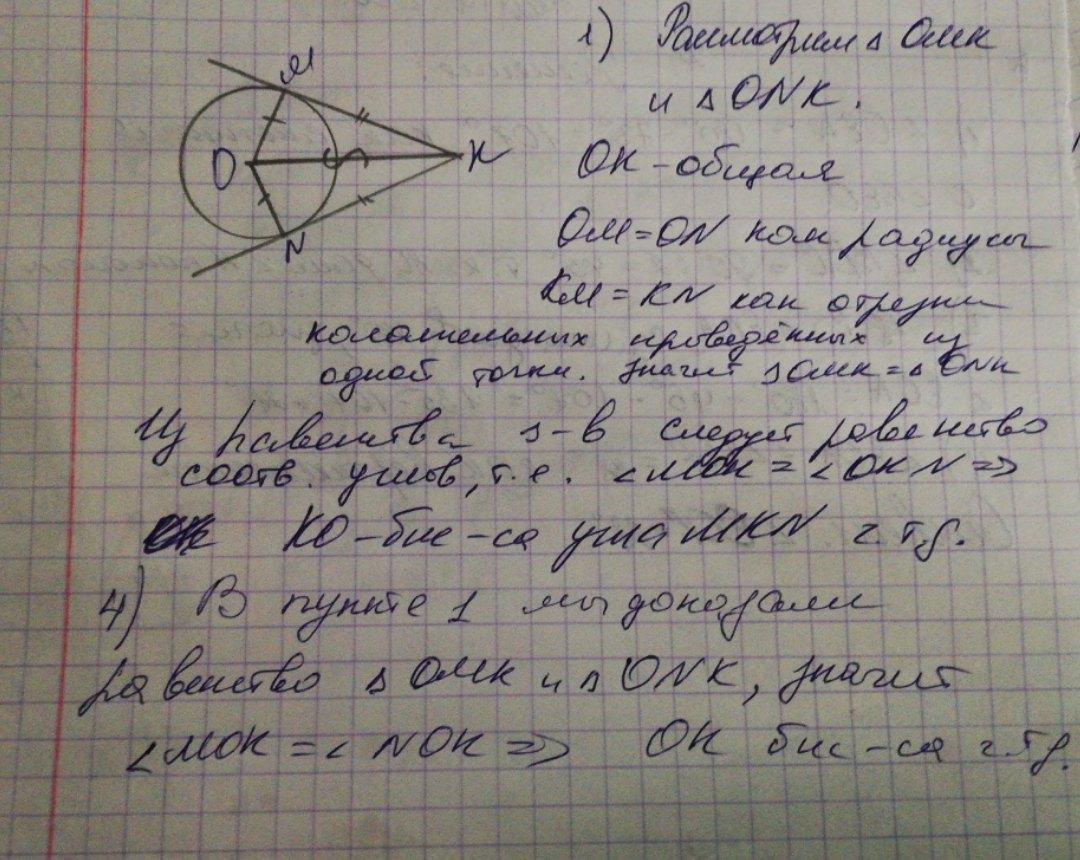 M
O
K
N
1) Рассмотрим △ OMK
и △ ONK.
OK - общая
OM = ON как радиусы
KM = KN как отрезки
касательных проведённых из
одной точки. Значит △OMK = △ ONK
Из равенства △-в следует равенство
соотв. углов, т.е. <MOK = <OKN =>
KO - бис-са угла MKN ч.т.д.
4) В пункте 1 мы доказали
равенство △ OMK и △ ONK, значит
<MOK = < NOK => OK бис-са ч.тд.